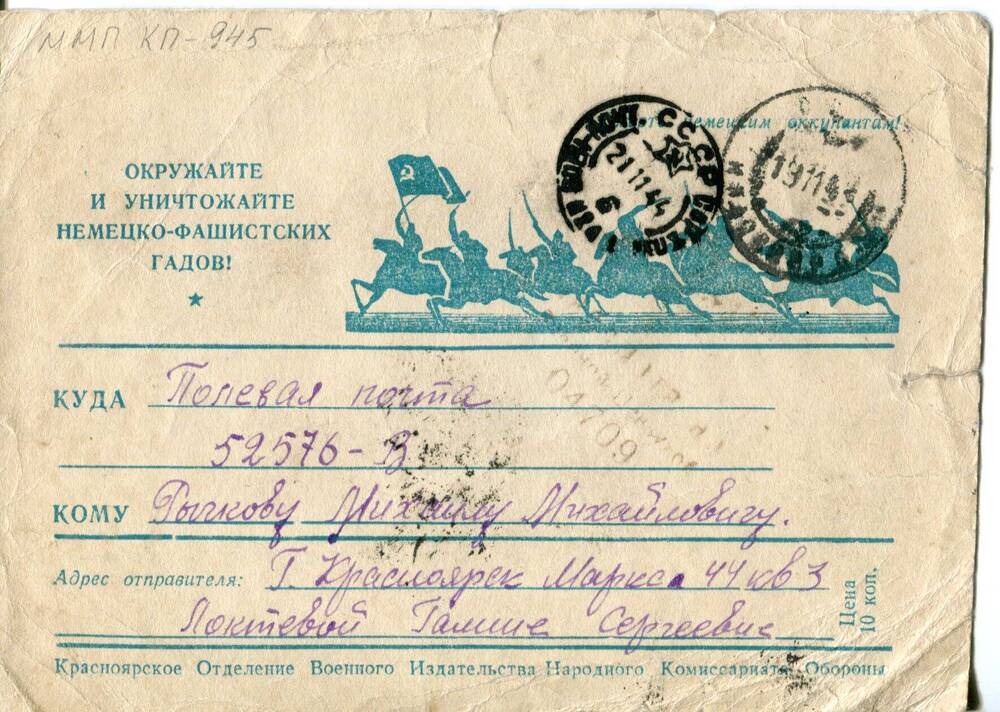 ММП КП-945
немецким оккупантам!
ОКРУЖАЙТЕ
И УНИЧТОЖАЙТЕ
НЕМЕЦКО-ФАШИСТСКИХ
ГАДОВ!
СССР
21 11 44
6
19 11 44
КУДА Полевая почта
52576-В
04709
КОМУ Рычкову Михаилу Михайловичу.
Адрес отправителя: Г. Красноярск Маркса 44 кв 3
Локтевой Галине Сергеевне
Цена
10 коп.
Красноярское Отделение Военного Издательства Народного Комиссариата Обороны